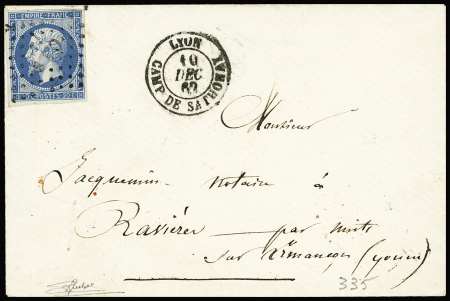 EMPIRE FRANC
POSTES 20 C
LYON
10
DEC
60
CAMP DE SATHONAY
Monsieur
Jacquemin Notaire à
Ravières par nuits
sur armançon (yonne)
335